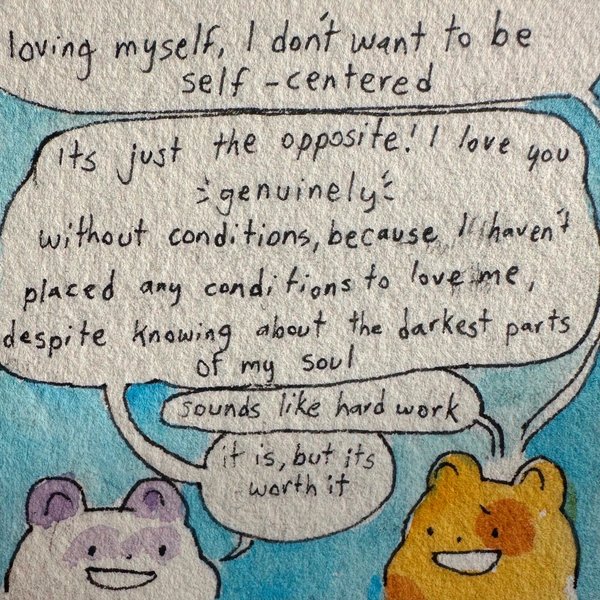 loving myself, I don't want to be
self-centered
its just the opposite! I love you
genuinely
without conditions, because I haven't
placed any conditions to love me,
despite knowing about the darkest parts
of my soul
sounds like hard work
it is, but its
worth it